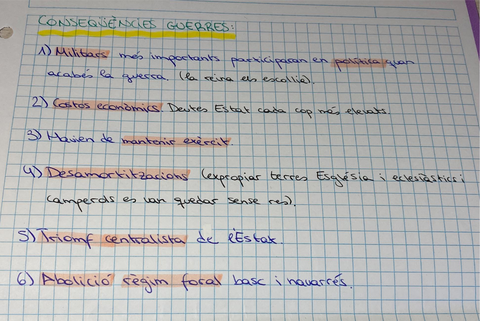 CONSEQÜÈNCIES GUERRES:
1) Militars més importants participaran en política quan
acabés la guerra. (la reina els escollia).
2) Costos econòmics. Deutes Estat cada cop més elevats.
3) Havien de mantenir exèrcit.
4) Desamortitzacions (expropiar terres Església i eclesiàstics i
camperols es van quedar sense res).
5) Triomf centralista de l'Estat.
6) Abolició règim foral basc i navarrès.